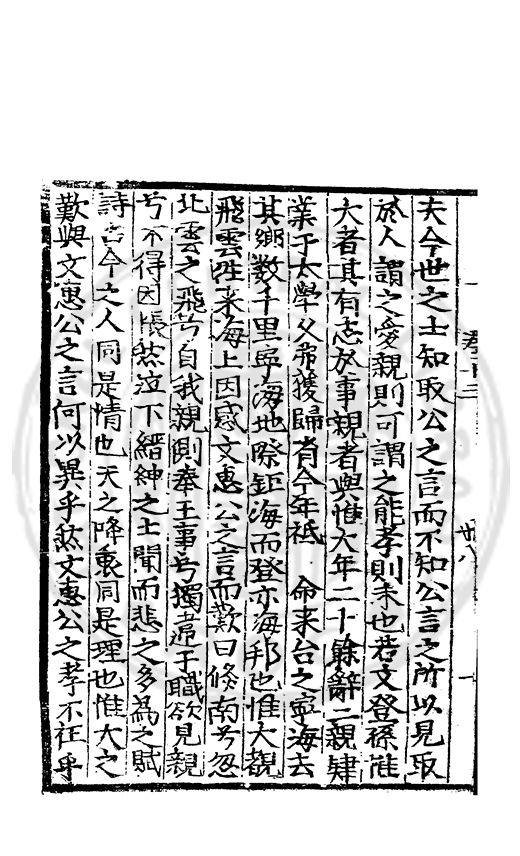 卷十三　　　卅八
夫今世之士知取公之言而不知公言之所以見取
於人謂之愛親則可謂之能孝則未也若文登孫惟
大者其有志於事親者與惟大年二十餘辭二親肄
業于太學父弗獲歸省今年祗　命来台之寧海去
其鄉數千里寧海地際鉅海而登亦海邦也惟大覩
飛雲徃来海上因感文惠公之言而歎曰倐南兮忽
北雲之飛兮自我親側奉王事兮獨凟于職欲見親
兮不得因悵然泣下縉紳之士聞而悲之多為之賦
詩古今之人同是情也天之降衷同是理也惟大之
歎與文惠公之言何以異乎然文惠公之孝不在乎